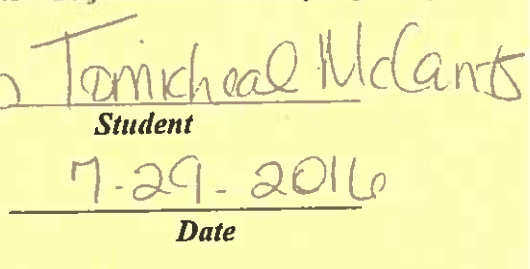 Tomicheal McCants
Student
7-29-2016
Date